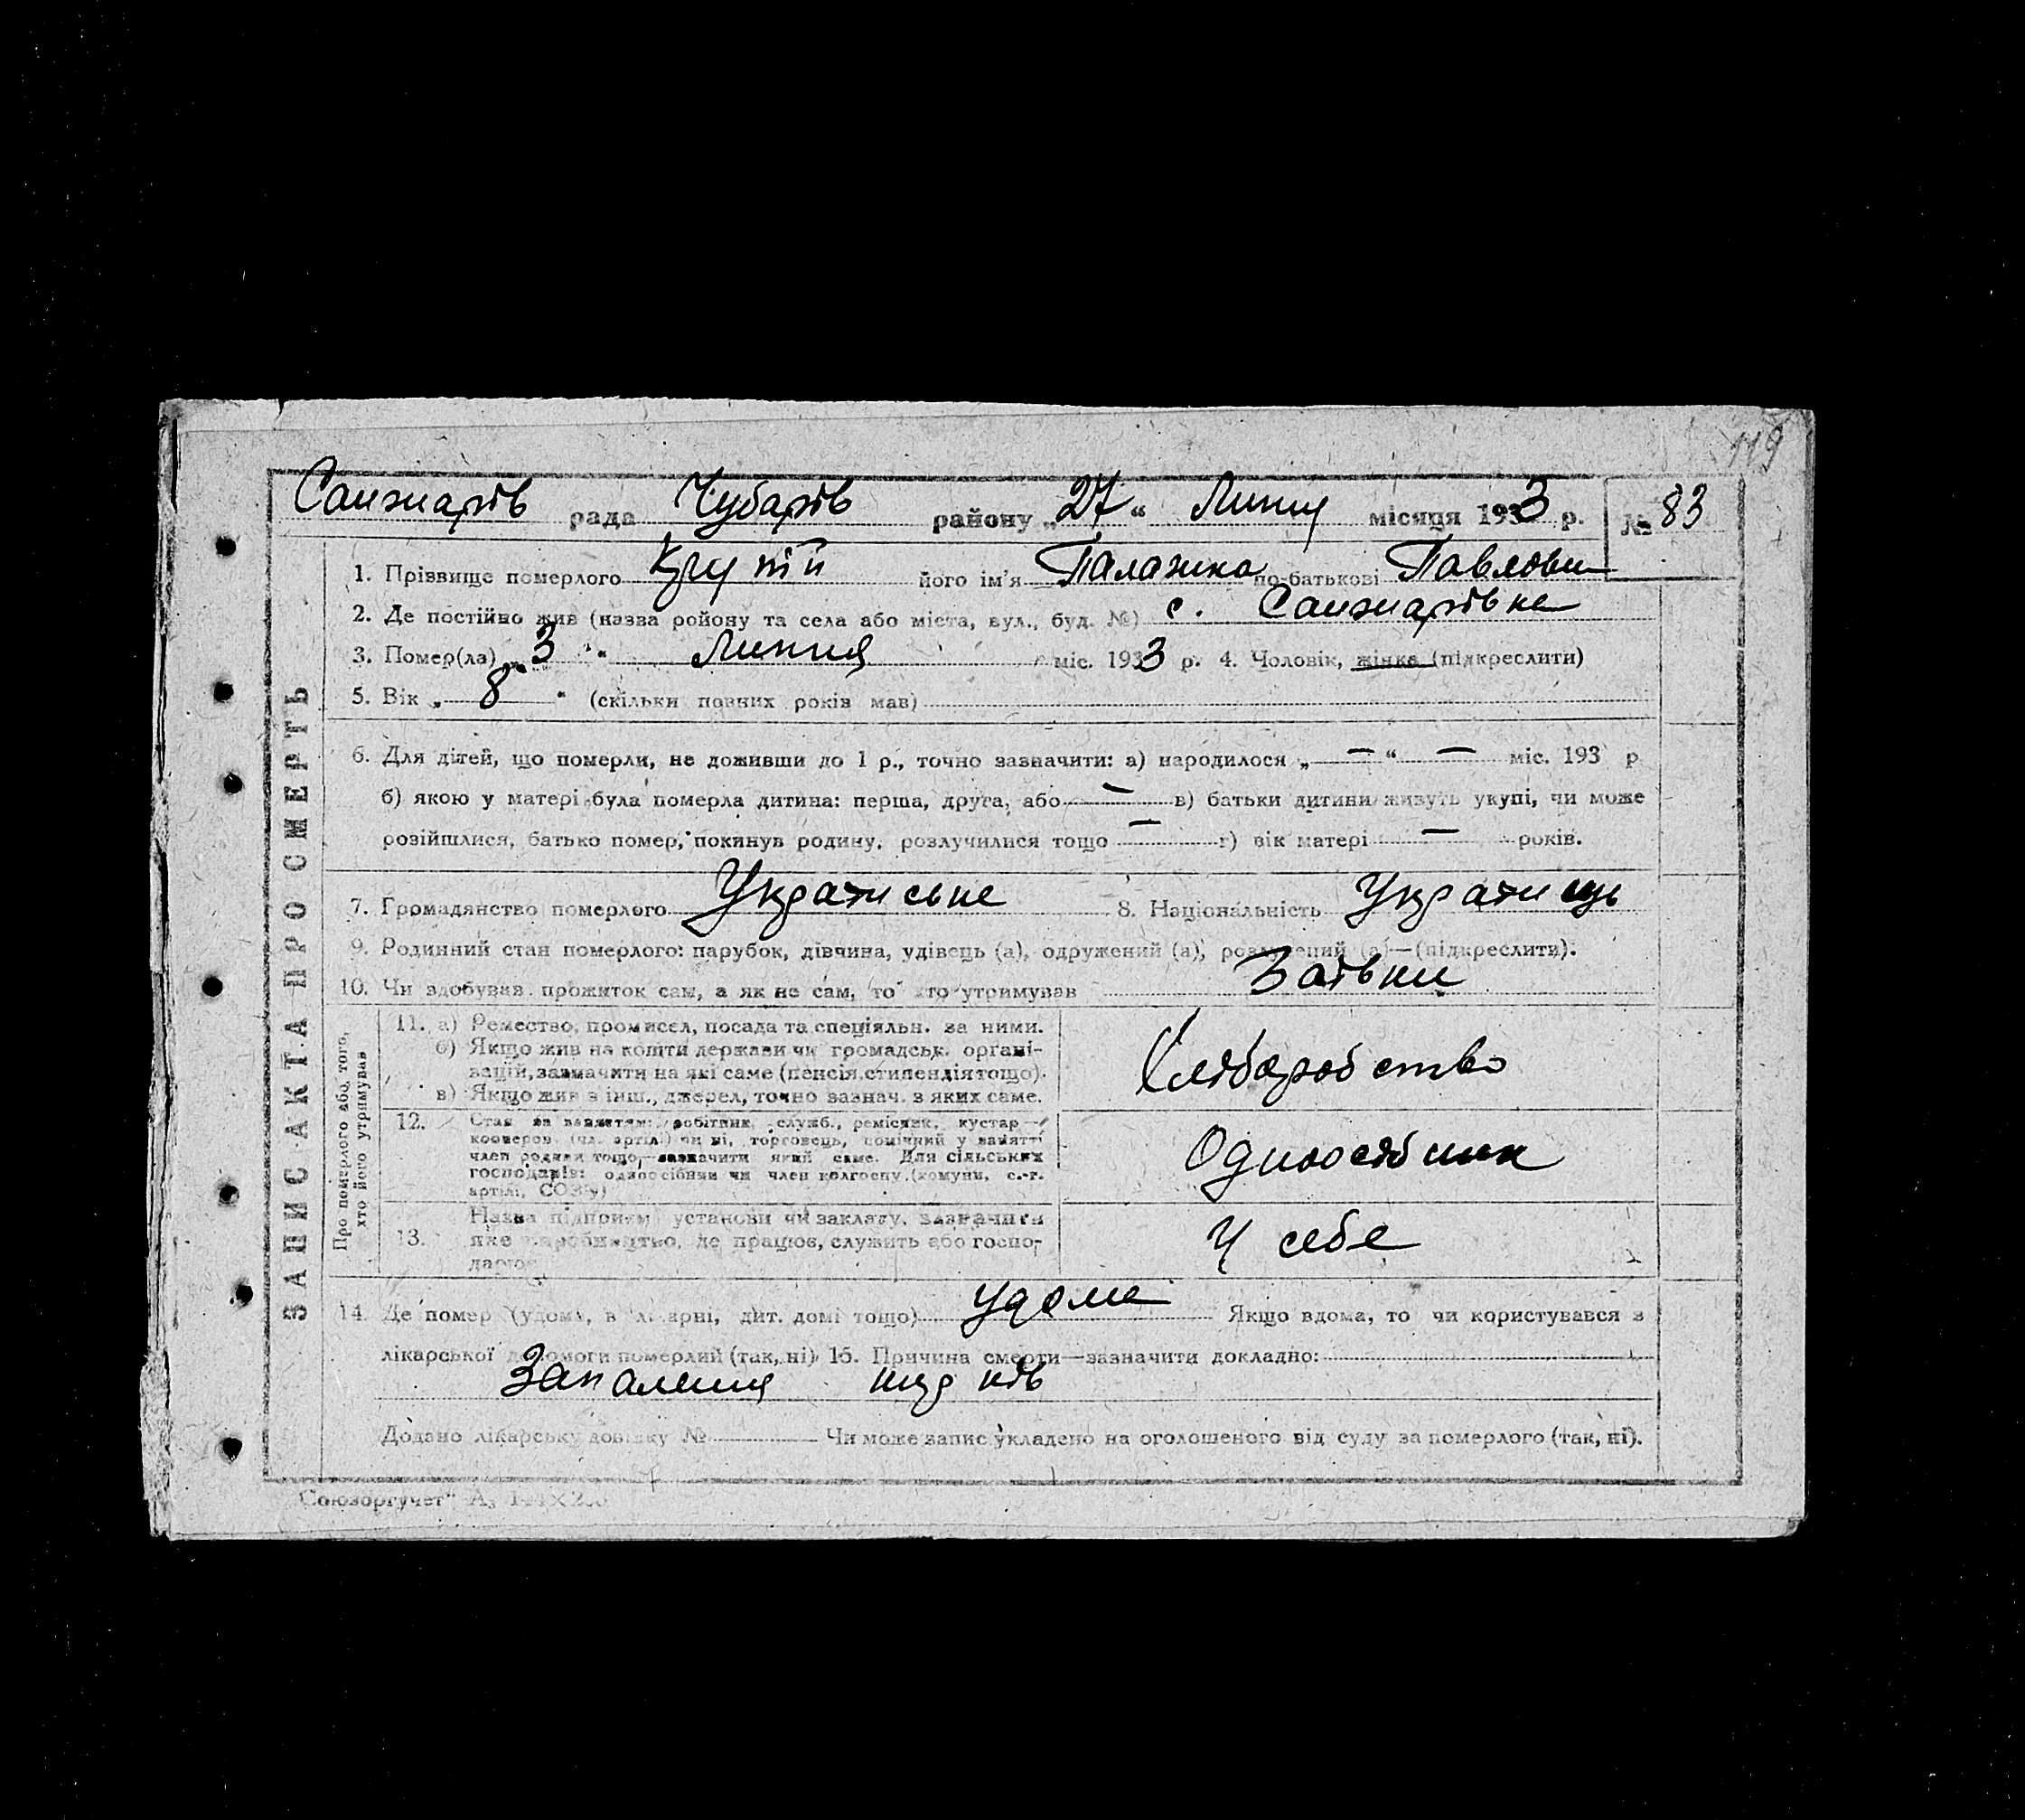 119
Санжарів рада Чубарів району „27“ Липня місяця 1933 р. № 83
ЗАПИС АКТА ПРО СМЕРТЬ
1. Прізвище померлого Крутій його ім'я Палажка по-батькові Павлови
2. Де постійно жив (назва ройону та села або міста, вул., буд. №) с. Санжарівка
3. Помер(ла) „3“ Липня міс. 1933 р. 4. Чоловік, жінка (підкреслити)
5. Вік „8“ (скільки повних років мав)
6. Для дітей, що померли, не доживши до 1 р., точно зазначити: а) народилося „—“ — міс. 193 р
б) якою у матері була померла дитина: перша, друга, або — в) батьки дитини живуть укупі, чи може
розійшлися, батько помер, покинув родину, розлучилися тощо — г) вік матері — років.
7. Громадянство померлого Українське 8. Національність Українць
9. Родинний стан померлого: парубок, дівчина, удівець (а), одружений (а), розлучений (а)—(підкреслити).
10. Чи здобував прожиток сам, а як не сам, то хто утримував Батьки
Про померлого або, того,
хто його утримував
11. а) Ремество, промисел, посада та спеціяльн. за ними.
б) Якщо жив на кошти держави чи громадськ. органі-
зацій, зазначити на які саме (пенсія, стипендія тощо).
в) Якщо жив з інш., джерел, точно зазнач. з яких саме.
Хліборобство
12. Стан за заняттям: робітник, служб., ремісник, кустар
кооперов. (чл. артілі) чи ні, торговець, помічний у занятті
член родини тощо,—зазначити який саме. Для сільських
господарів: одноосібник чи член колгоспу (комуни, с.-г.
артілі, СОЗ'у)
Одноосібник
13. Назва підприєм. установи чи закладу, зазначити
яке виробництво, де працює, служить або госпо-
дарює
У себе
14. Де помер (удома, в лікарні, дит. домі тощо) удома Якщо вдома, то чи користувався з
лікарської допомоги померлий (так, ні) 15. Причина смерти—зазначити докладно:
Запалення нирків
Додано лікарську довідку № Чи може запис укладено на оголошеного від суду за померлого (так, ні).
"Союзоргучет" А₅